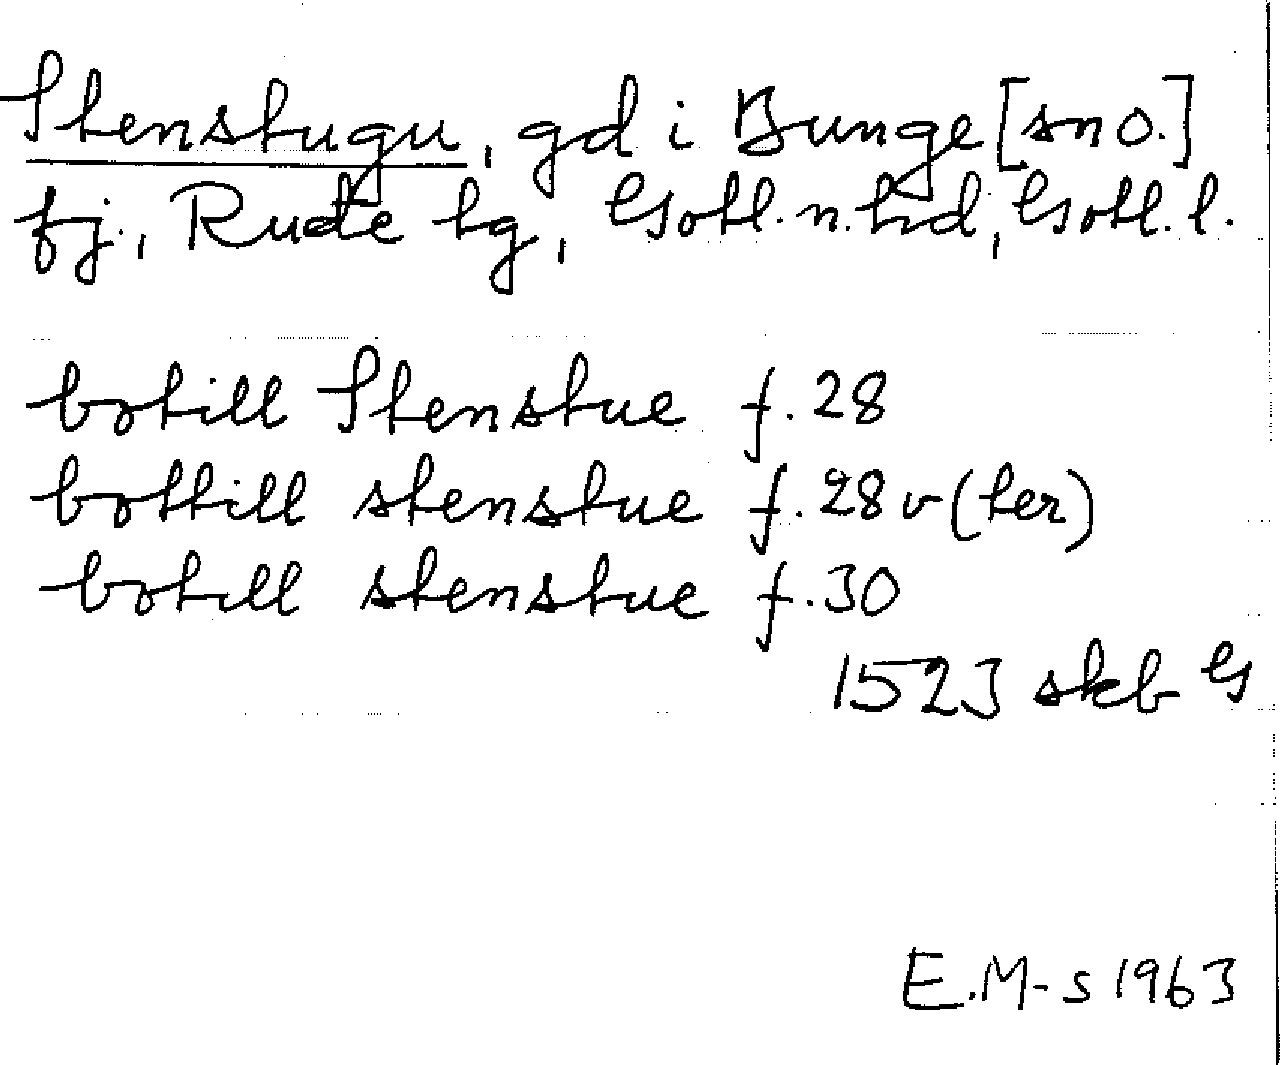 Stenstugu, gd i Bunge [sn o.]
fj., Rude tg, Gotl. n. hd, Gotl. l.
botill Stenstue f. 28
bottill stenstue f. 28 v (ter)
botill stenstue f. 30
1523 skb G
E.M-s 1963